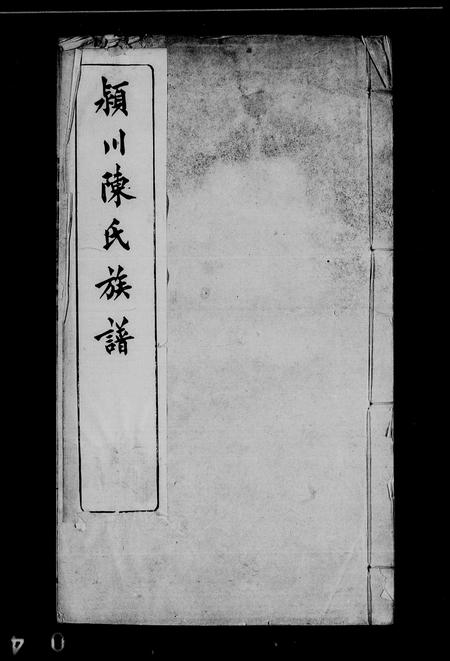 潁川陳氏族譜
04